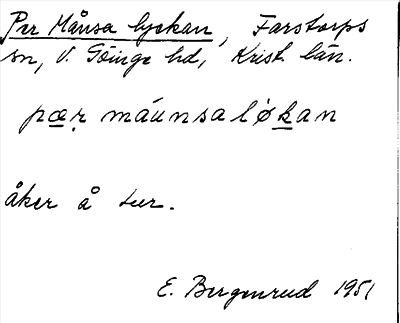 Per Månsa lyckan, Farstorps
sn, V. Göinge hd, Krist. län.
pær máunsaløkan
åker å tur.
E. Bergenrud 1951